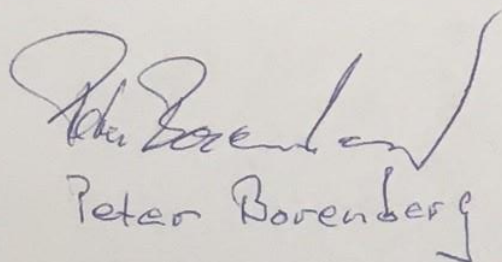 Peter Borenberg
Peter Borenberg